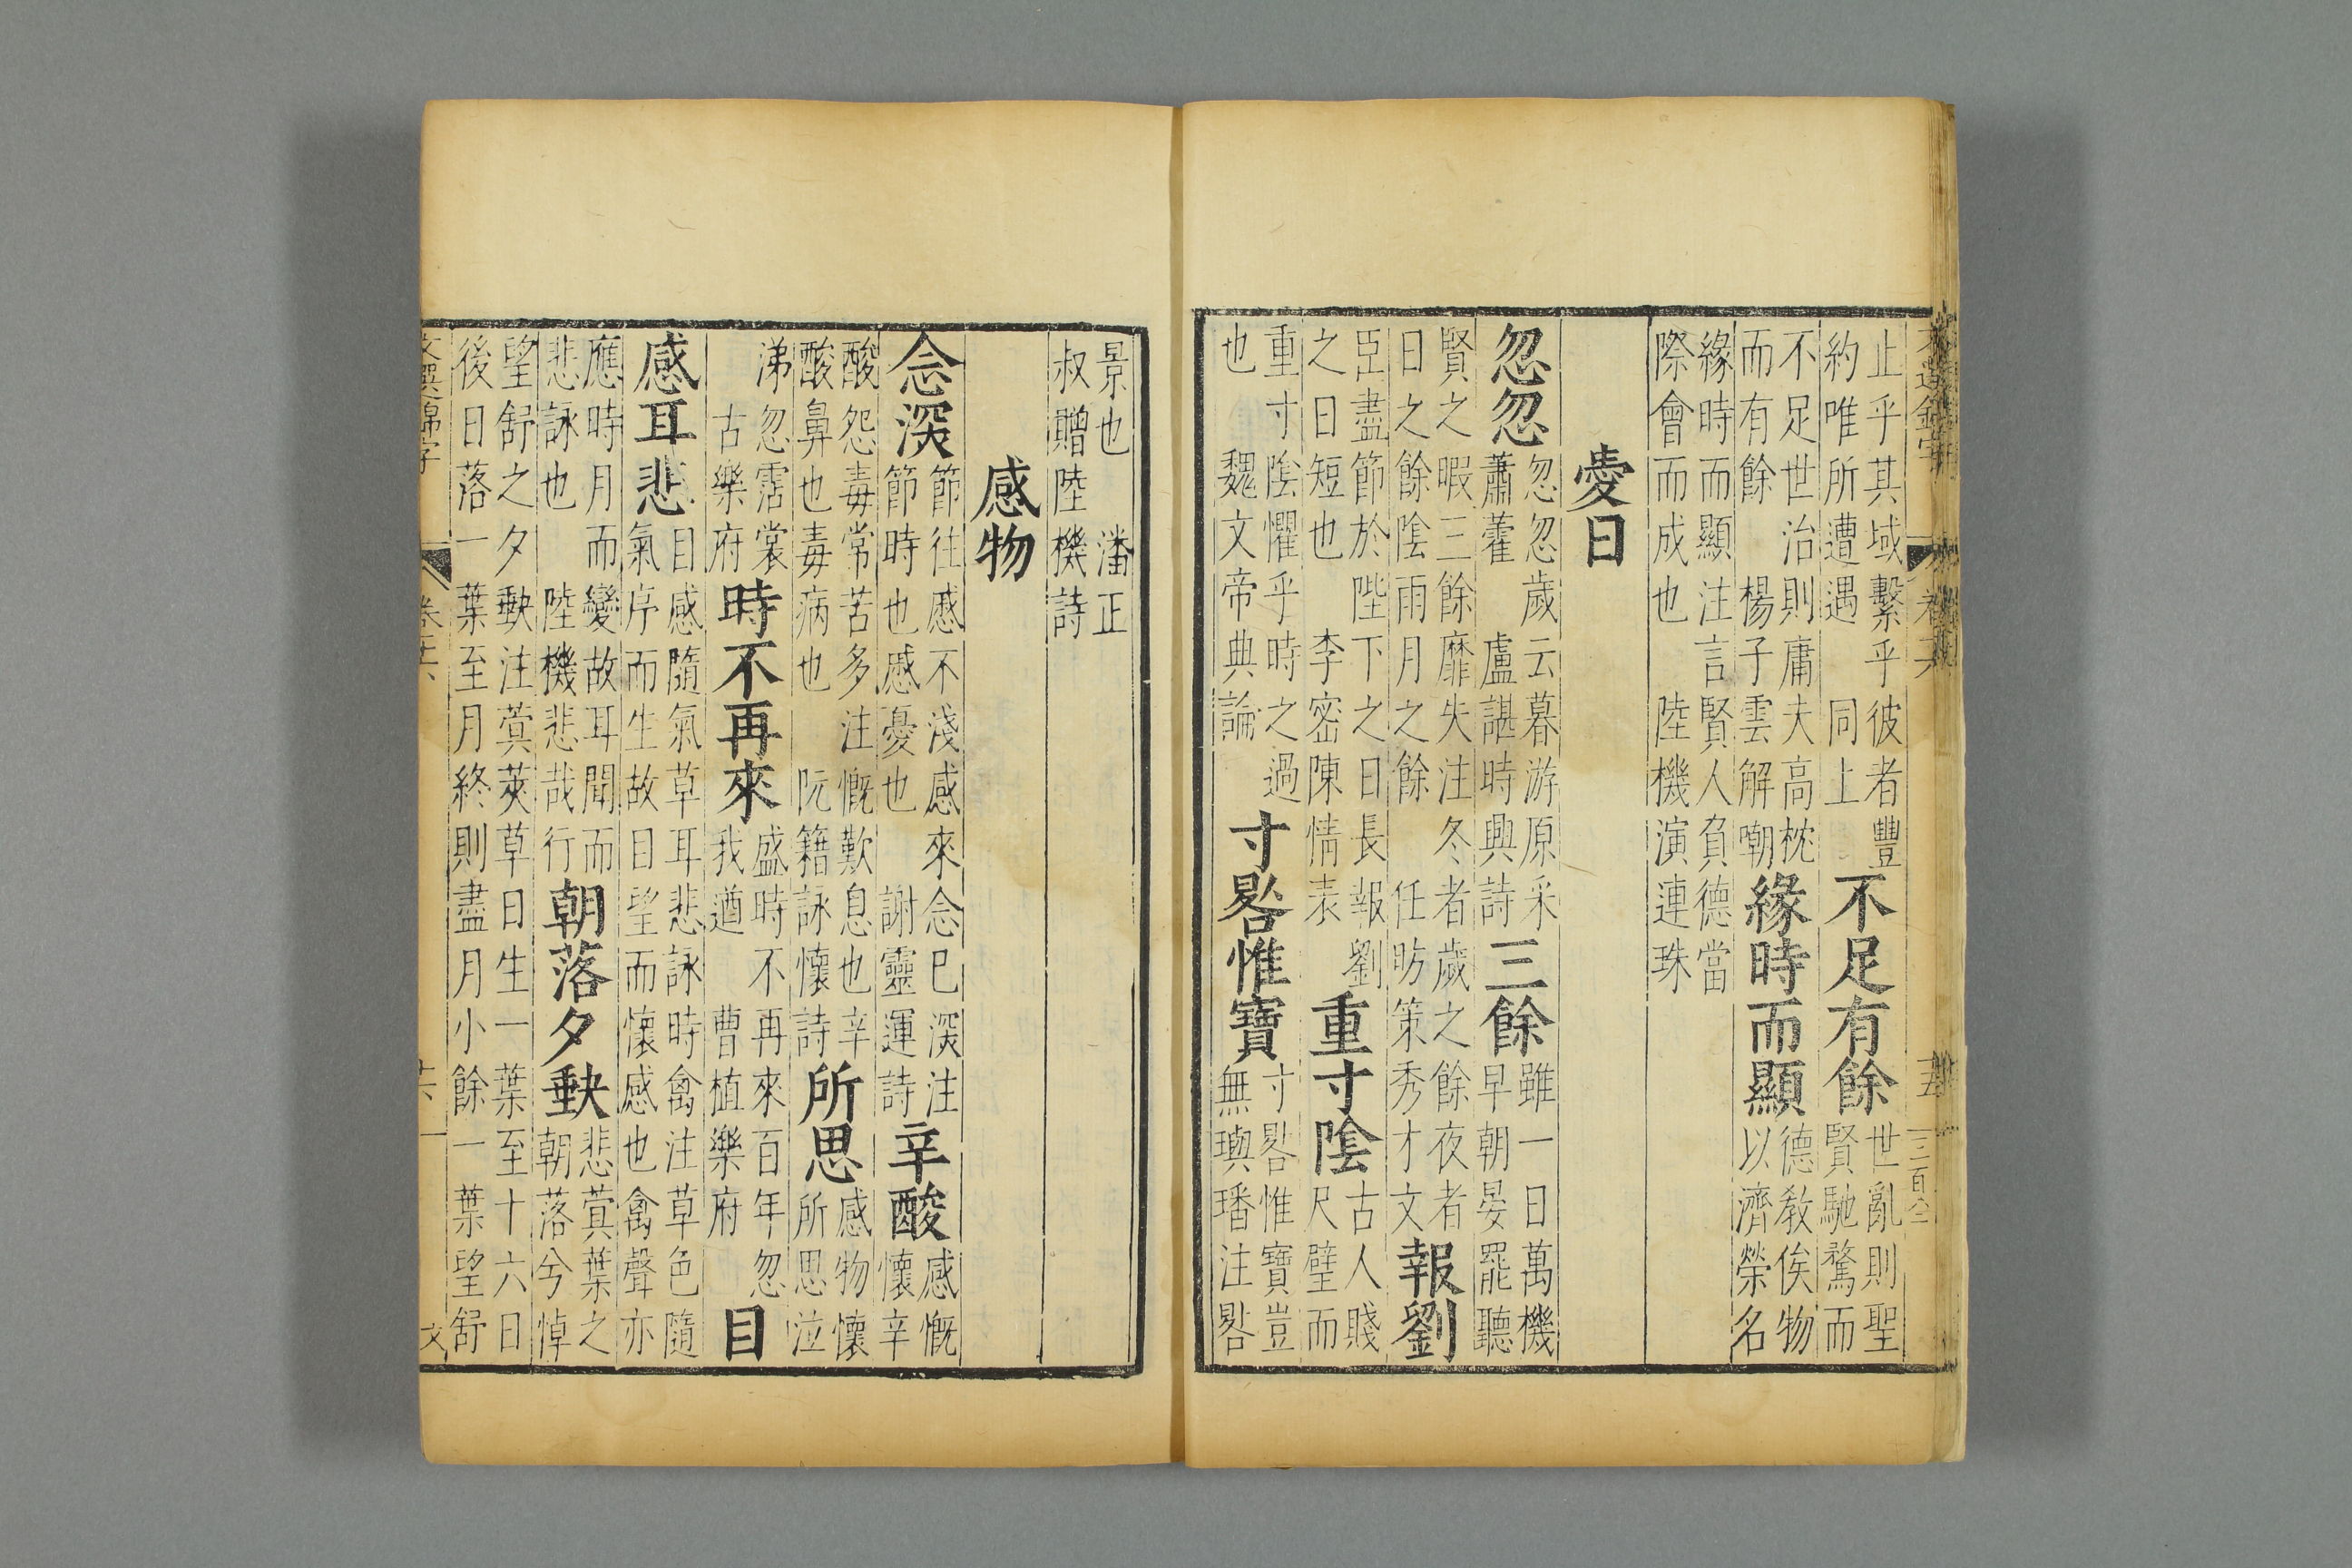 止乎其域繫乎彼者豐
約唯所遭遇　同上
不足有餘
世亂則聖
賢馳騖而
不足世治則庸夫高枕
而有餘　楊子雲解嘲
緣時而顯
德教俟物
以濟榮名
緣時而顯注言賢人負德當
際會而成也　陸機演連珠
愛日
忽忽
忽忽歲云暮游原采
蕭藿　盧諶時興詩
三餘
雖一日萬機
早朝晏罷聽
賢之暇三餘靡失注冬者歲之餘夜者
日之餘陰雨月之餘　任昉策秀才文
報劉
臣盡節於陛下之日長報劉
之日短也　李密陳情表
重寸陰
古人賤
尺璧而
重寸陰懼乎時之過
也　魏文帝典論
寸晷惟寶
寸晷惟寶豈
無璵璠注晷
景也　潘正
叔贈陸機詩
感物
念深
節往慼不淺感來念已深注
節時也慼憂也　謝靈運詩
辛酸
感慨
懷辛
酸怨毒常苦多注慨歎息也辛
酸鼻也毒病也　阮籍詠懷詩
所思
感物懷
所思泣
涕忽霑裳
古樂府
時不再來
盛時不再來百年忽
我遒　曹植樂府
目
感耳悲
目感隨氣草耳悲詠時禽注草色隨
氣序而生故目望而懷感也禽聲亦
應時月而變故耳聞而
悲詠也　陸機悲哉行
朝落夕缺
悲蓂葉之
朝落兮悼
望舒之夕缺注蓂莢草日生一葉至十六日
後日落一葉至月終則盡月小餘一葉望舒